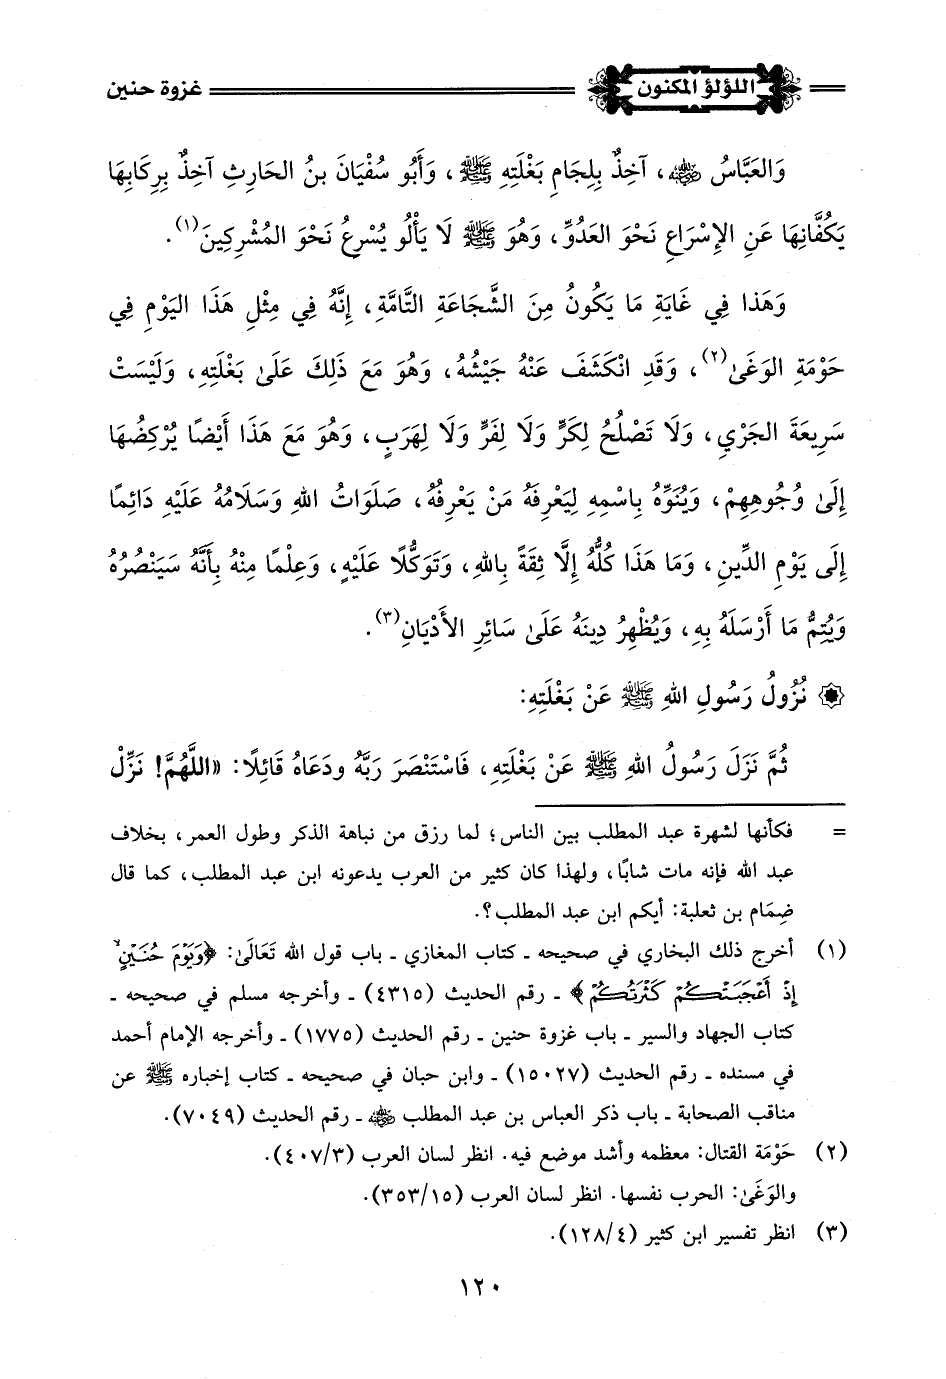 اللؤلؤ المكنون
غزوة حنين
وَالعَبَّاسُ ﵁، آخِذٌ بِلِجَامِ بَغْلَتِهِ ﷺ، وَأَبُو سُفْيَانَ بنُ الحَارِثِ آخِذٌ بِرِكَابِهَا
يَكُفَّانِهَا عَنِ الإِسْرَاعِ نَحْوَ العَدُوِّ، وَهُوَ ﷺ لَا يَأْلُو يُسْرِعُ نَحْوَ المُشْرِكِينَ(١).
وَهَذا فِي غَايَةِ مَا يَكُونُ مِنَ الشَّجَاعَةِ التَّامَّةِ، إِنَّهُ فِي مِثْلِ هَذَا اليَوْمِ فِي
حَوْمَةِ الوَغَىٰ(٢)، وَقَدِ انْكَشَفَ عَنْهُ جَيْشُهُ، وَهُوَ مَعَ ذَلِكَ عَلَىٰ بَغْلَتِهِ، وَلَيْسَتْ
سَرِيعَةَ الجَرْيِ، وَلَا تَصْلُحُ لِكَرٍّ وَلَا لِفَرٍّ وَلَا لِهَرَبٍ، وَهُوَ مَعَ هَذَا أَيْضًا يُرْكِضُهَا
إِلَىٰ وُجُوهِهِمْ، وَيُنَوِّهُ بِاسْمِهِ لِيَعْرِفَهُ مَنْ يَعْرِفُهُ، صَلَوَاتُ اللهِ وَسَلَامُهُ عَلَيْهِ دَائِمًا
إِلَى يَوْمِ الدِّينِ، وَمَا هَذَا كُلُّهُ إِلَّا ثِقَةً بِاللهِ، وَتَوَكُّلًا عَلَيْهِ، وَعِلْمًا مِنْهُ بِأَنَّهُ سَيَنْصُرُهُ
وَيُتِمُّ مَا أَرْسَلَهُ بِهِ، وَيُظْهِرُ دِينَهُ عَلَىٰ سَائِرِ الأَدْيَانِ(٣).
۞ نُزُولُ رَسُولِ اللهِ ﷺ عَنْ بَغْلَتِهِ:
ثُمَّ نَزَلَ رَسُولُ اللهِ ﷺ عَنْ بَغْلَتِهِ، فَاسْتَنْصَرَ رَبَّهُ ودَعَاهُ قَائِلًا: «اللَّهُمَّ! نَزِّلْ
= فكأنها لشهرة عبد المطلب بين الناس؛ لما رزق من نباهة الذكر وطول العمر، بخلاف
عبد الله فإنه مات شابًا، ولهذا كان كثير من العرب يدعونه ابن عبد المطلب، كما قال
ضِمَام بن ثعلبة: أيكم ابن عبد المطلب؟.
(١) أخرج ذلك البخاري في صحيحه - كتاب المغازي - باب قول الله تَعَالَىٰ: ﴿وَيَوْمَ حُنَيْنٍ ۙ
إِذْ أَعْجَبَتْكُمْ كَثْرَتُكُمْ﴾ - رقم الحديث (٤٣١٥) - وأخرجه مسلم في صحيحه -
كتاب الجهاد والسير - باب غزوة حنين - رقم الحديث (١٧٧٥) - وأخرجه الإمام أحمد
في مسنده - رقم الحديث (١٥٠٢٧) - وابن حبان في صحيحه - كتاب إخباره ﷺ عن
مناقب الصحابة - باب ذكر العباس بن عبد المطلب ﵁ - رقم الحديث (٧٠٤٩).
(٢) حَوْمَة القتال: معظمه وأشد موضع فيه. انظر لسان العرب (٤٠٧/٣).
والوَغَىٰ: الحرب نفسها. انظر لسان العرب (٣٥٣/١٥).
(٣) انظر تفسير ابن كثير (١٢٨/٤).
١٢٠